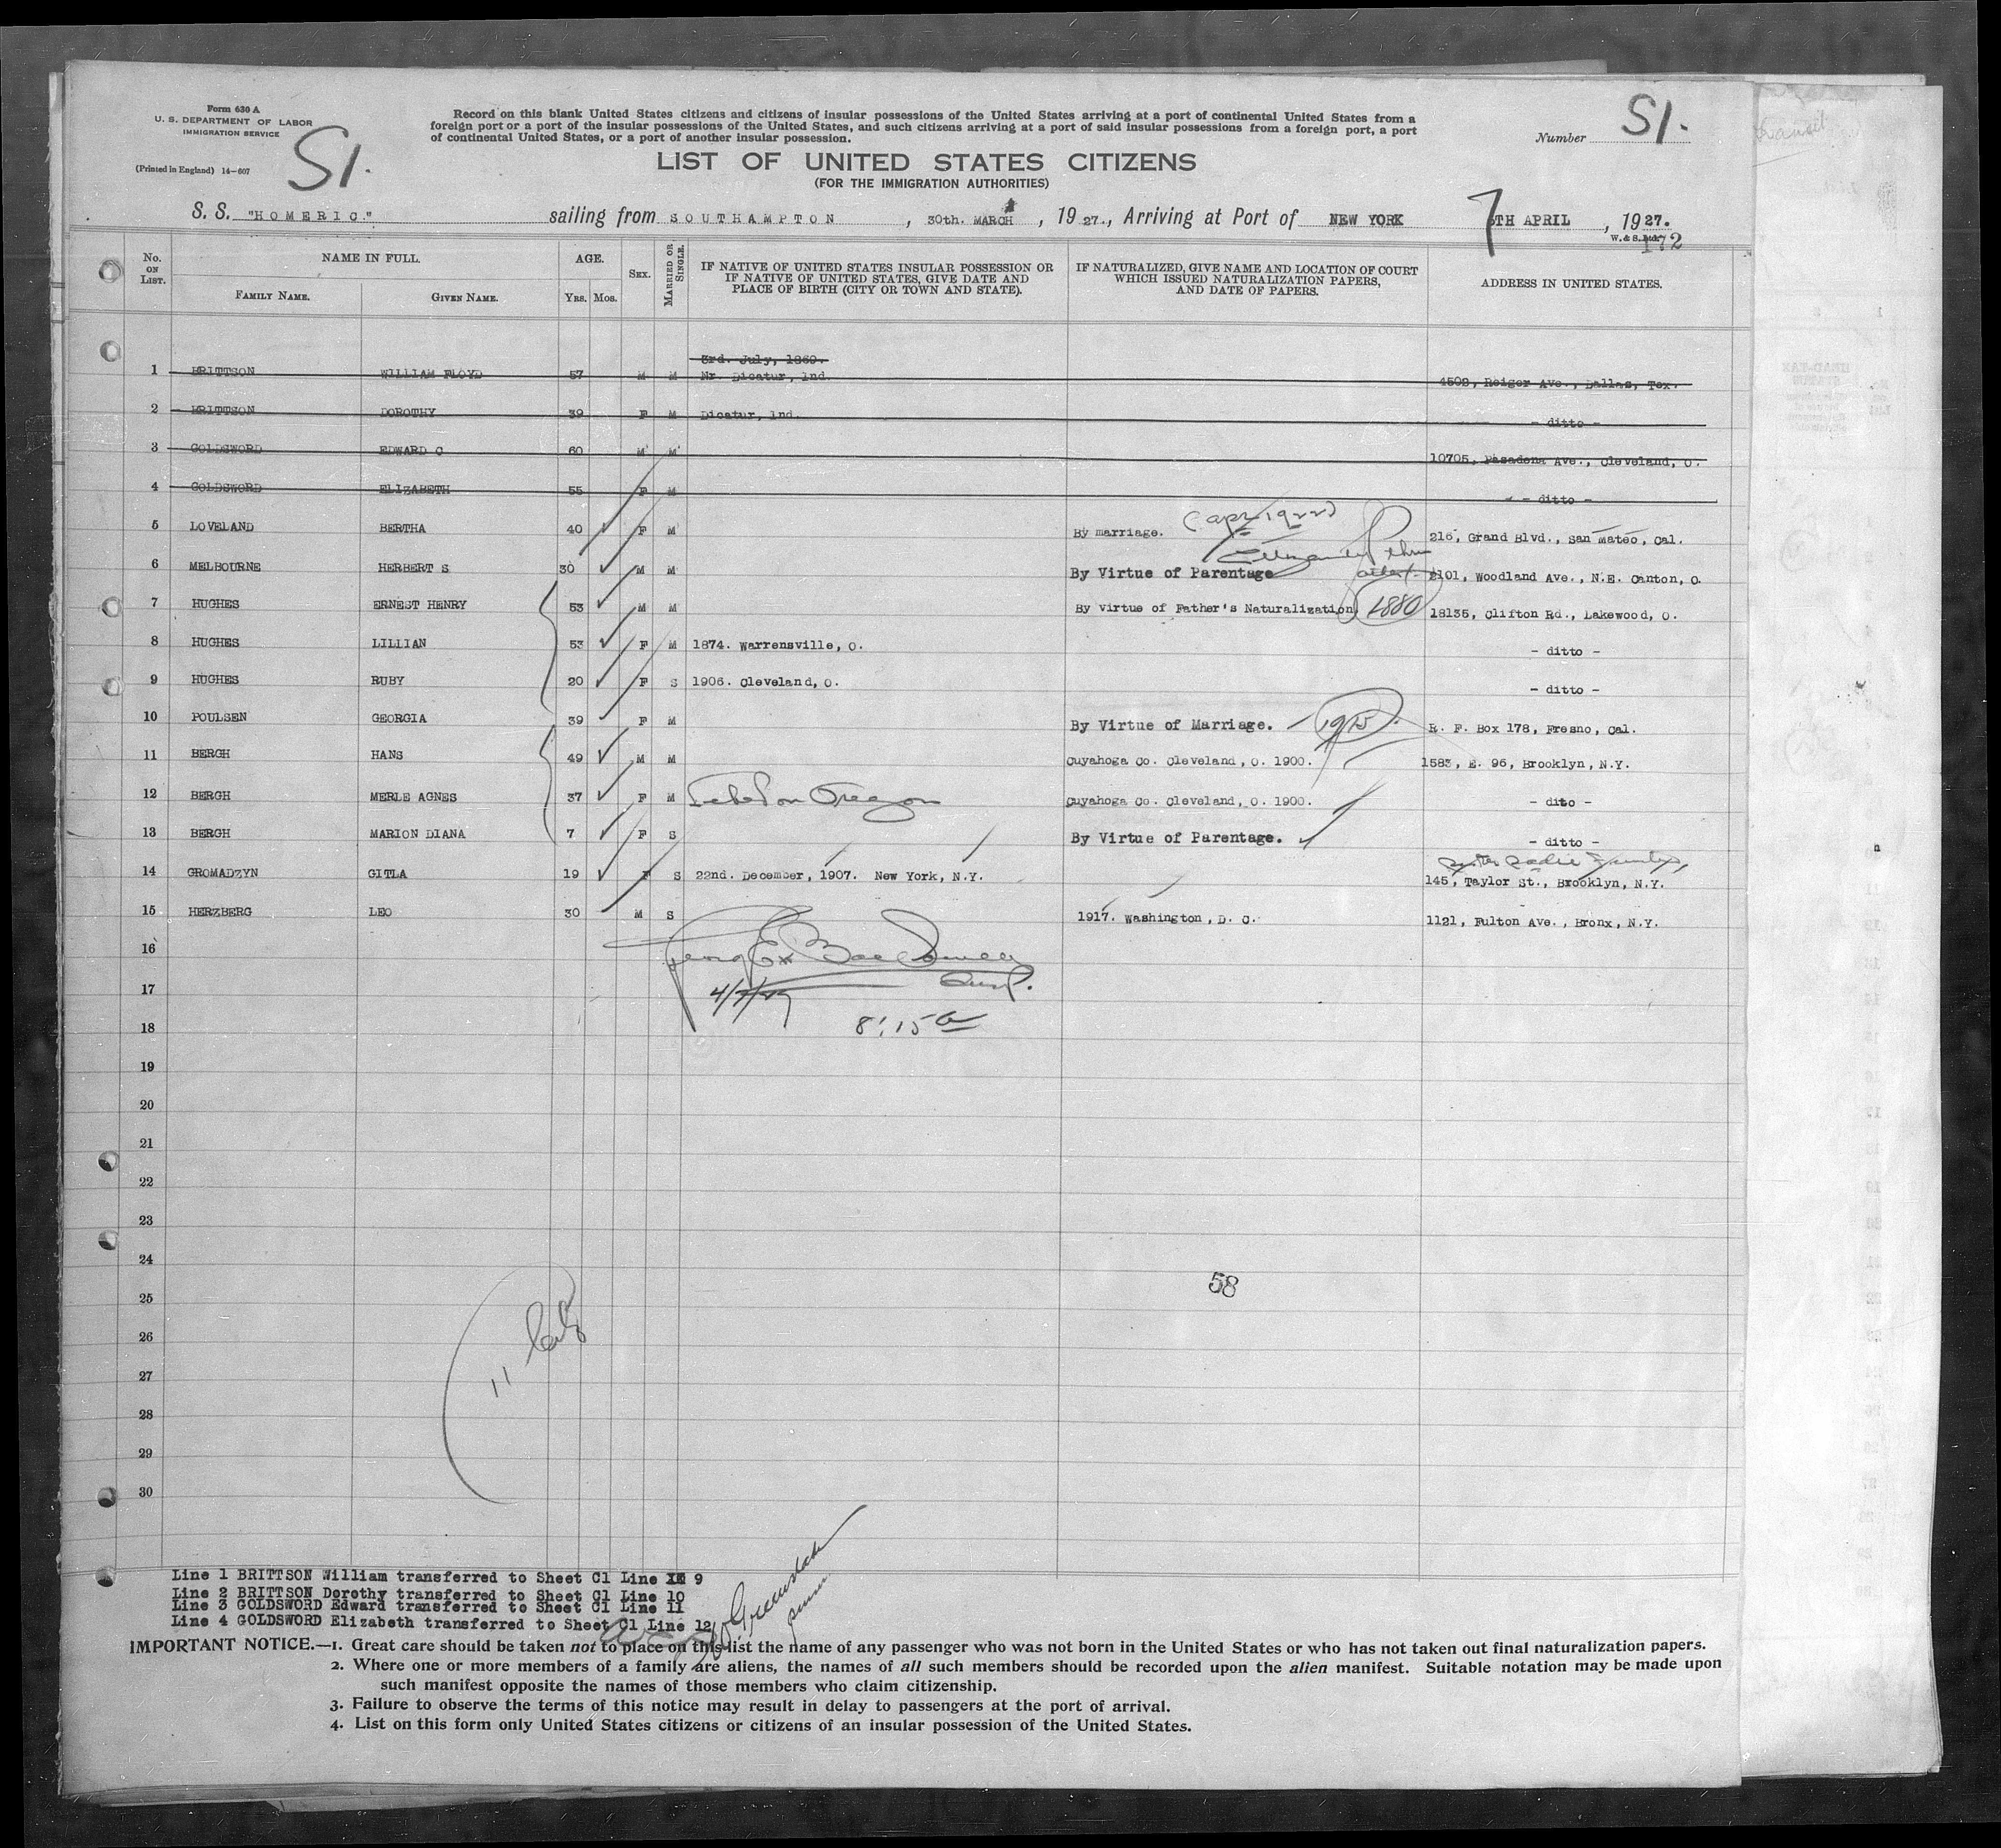 Form 630 A
U. S. DEPARTMENT OF LABOR
IMMIGRATION SERVICE
(Printed in England) 14—607
S1.
Record on this blank United States citizens and citizens of insular possessions of the United States arriving at a port of continental United States from a
foreign port or a port of the insular possessions of the United States, and such citizens arriving at a port of said insular possessions from a foreign port, a port
of continental United States, or a port of another insular possession.
Number S1.
LIST OF UNITED STATES CITIZENS
(FOR THE IMMIGRATION AUTHORITIES)
S. S. "HOMERIC." sailing from SOUTHAMPTON, 30th. MARCH, 1927., Arriving at Port of NEW YORK 7TH APRIL, 1927.
W. & S. Ltd. 172
No. ON LIST. NAME IN FULL. AGE. SEX. MARRIED OR SINGLE. IF NATIVE OF UNITED STATES INSULAR POSSESSION OR IF NATIVE OF UNITED STATES, GIVE DATE AND PLACE OF BIRTH (CITY OR TOWN AND STATE). IF NATURALIZED, GIVE NAME AND LOCATION OF COURT WHICH ISSUED NATURALIZATION PAPERS, AND DATE OF PAPERS. ADDRESS IN UNITED STATES.
FAMILY NAME. GIVEN NAME. YRS. MOS.
3rd. July, 1869.
1 BRITTSON WILLIAM FLOYD 57 M M Nr. Dicatur, Ind. 4502, Reiger Ave., Dallas, Tex.
2 BRITTSON DOROTHY 39 F M Dicatur, Ind. - ditto -
3 GOLDSWORD EDWARD C 60 M M 10705, Pasadena Ave., Cleveland, O.
4 GOLDSWORD ELIZABETH 55 F M - ditto -
5 LOVELAND BERTHA 40 F M By marriage. (Apr 1922) 216, Grand Blvd., San Mateo, Cal.
6 MELBOURNE HERBERT S 30 M M By Virtue of Parentage 2101, Woodland Ave., N.E. Canton, O.
7 HUGHES ERNEST HENRY 53 M M By virtue of Father's Naturalization 1880 18135, Clifton Rd., Lakewood, O.
8 HUGHES LILLIAN 53 F M 1874. Warrensville, O. - ditto -
9 HUGHES RUBY 20 F S 1906. Cleveland, O. - ditto -
10 POULSEN GEORGIA 39 F M By Virtue of Marriage. - 1915. R. F. Box 178, Fresno, Cal.
11 BERGH HANS 49 M M Cuyahoga Co. Cleveland, O. 1900. 1583, E. 96, Brooklyn, N.Y.
12 BERGH MERLE AGNES 37 F M Lebanon Oregon Cuyahoga Co. Cleveland, O. 1900. - dito -
13 BERGH MARION DIANA 7 F S By Virtue of Parentage. - ditto -
14 GROMADZYN GITLA 19 F S 22nd. December, 1907. New York, N.Y. 145, Taylor St., Brooklyn, N.Y.
15 HERZBERG LEO 30 M S 1917. Washington, D. C. 1121, Fulton Ave., Bronx, N.Y.
16
17
4/7/27
18
8:15 a
19
20
21
22
23
24
58
25
26
27
11
28
29
30
Line 1 BRITTSON William transferred to Sheet C1 Line 9
Line 2 BRITTSON Dorothy transferred to Sheet C1 Line 10
Line 3 GOLDSWORD Edward transferred to Sheet C1 Line 11
Line 4 GOLDSWORD Elizabeth transferred to Sheet C1 Line 12
IMPORTANT NOTICE.—1. Great care should be taken not to place on this list the name of any passenger who was not born in the United States or who has not taken out final naturalization papers.
2. Where one or more members of a family are aliens, the names of all such members should be recorded upon the alien manifest. Suitable notation may be made upon
such manifest opposite the names of those members who claim citizenship.
3. Failure to observe the terms of this notice may result in delay to passengers at the port of arrival.
4. List on this form only United States citizens or citizens of an insular possession of the United States.